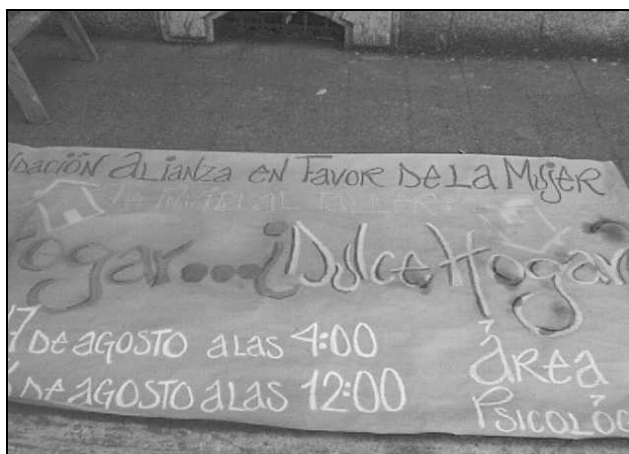 dación Alianza en Favor De La Mujer
Te invita al taller:
ogar...¿Dulce Hogar?
7 De agosto a las 4:00
De agosto a las 12:00
Área
Psicoló